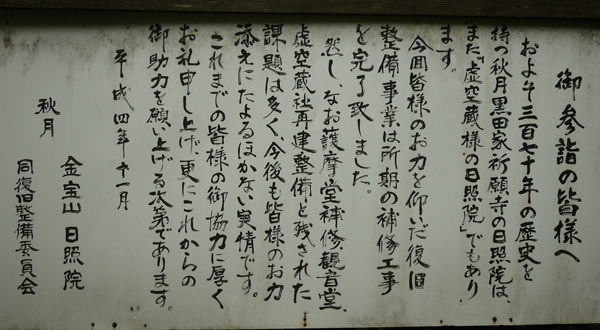 御参詣の皆様へ
およそ三百七十年の歴史を
持つ秋月黒田家祈願寺の日照院は、
また「虚空蔵様の日照院」でもあり
ます。
今回皆様のお力を仰いだ復旧
整備事業は所期の補修工事
を完了致しました。
然し、なお護摩堂補修、観音堂、
虚空蔵社再建整備と残された
課題は多く、今後も皆様のお力
添えにたよるほかない実情です。
これまでの皆様の御協力に厚く
お礼申し上げ、更にこれからの
御助力を願い上げる次第であります。
平成四年十一月
秋月
金宝山 日照院
同復旧整備委員会